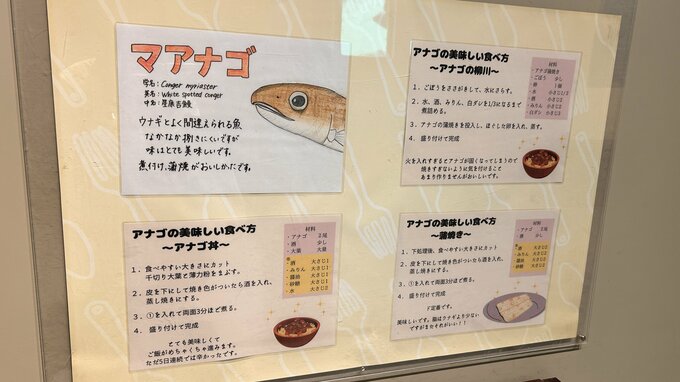 マアナゴ
学名: Conger myriaster
英名: White spotted conger
中名: 星康吉鰻
ウナギとよく間違えられる魚
なかなか捌きにくいですが
味はとても美味しいです。
煮付け、蒲焼がおいしかたです。
アナゴの美味しい食べ方
~アナゴの柳川~
材料
・アナゴ蒲焼き
・ごぼう 少し
・卵 1個
・水
・酒 小さじ2
・みりん
・白ダシ
1、ごぼうをささがきして、水にさらす。
2、水、酒、みりん、白ダシを1/3になるまで
煮詰める。
3、アナゴの蒲焼きを投入し、ほぐした卵を入れ、蒸す。
4、盛り付けて完成
火を入れすぎるとアナゴが固くなってしまうので
焼きすぎないように気を付けること
あまり作りませんがおいしいです。
アナゴの美味しい食べ方
~アナゴ丼~
材料
・アナゴ 2尾
・酒 少し
・大葉 大量
・酒 大さじ1
・みりん 大さじ1
・醤油 大さじ1
・砂糖 大さじ1
・水 大さじ2
1、食べやすい大きさにカット
千切り大葉と薄力粉をまぶす。
2、皮を下にして焼き色がついたら酒を入れ、
蒸し焼きにする。
3、①を入れて両面3分ほど煮る。
4、盛り付けて完成
とても美味しくて
ご飯がめちゃくちゃ進みます。
ただ5日連続では辛かったです。
アナゴの美味しい食べ方
~蒲焼き~
材料
・アナゴ 2尾
・酒 少し
・酒 大さじ1
・みりん 大さじ1
・醤油 大さじ1
・砂糖 大さじ1
・水 大さじ2
1、下処理後、食べやすい大きさにカット
2、皮を下にして焼き色がついたら酒を入れ、
蒸し焼きにする。
3、①を入れて両面3分ほど煮る。
4、盛り付けて完成
ド定番です。
美味しいです。脂はウナギより少ない
ですがまたそれがいい!!